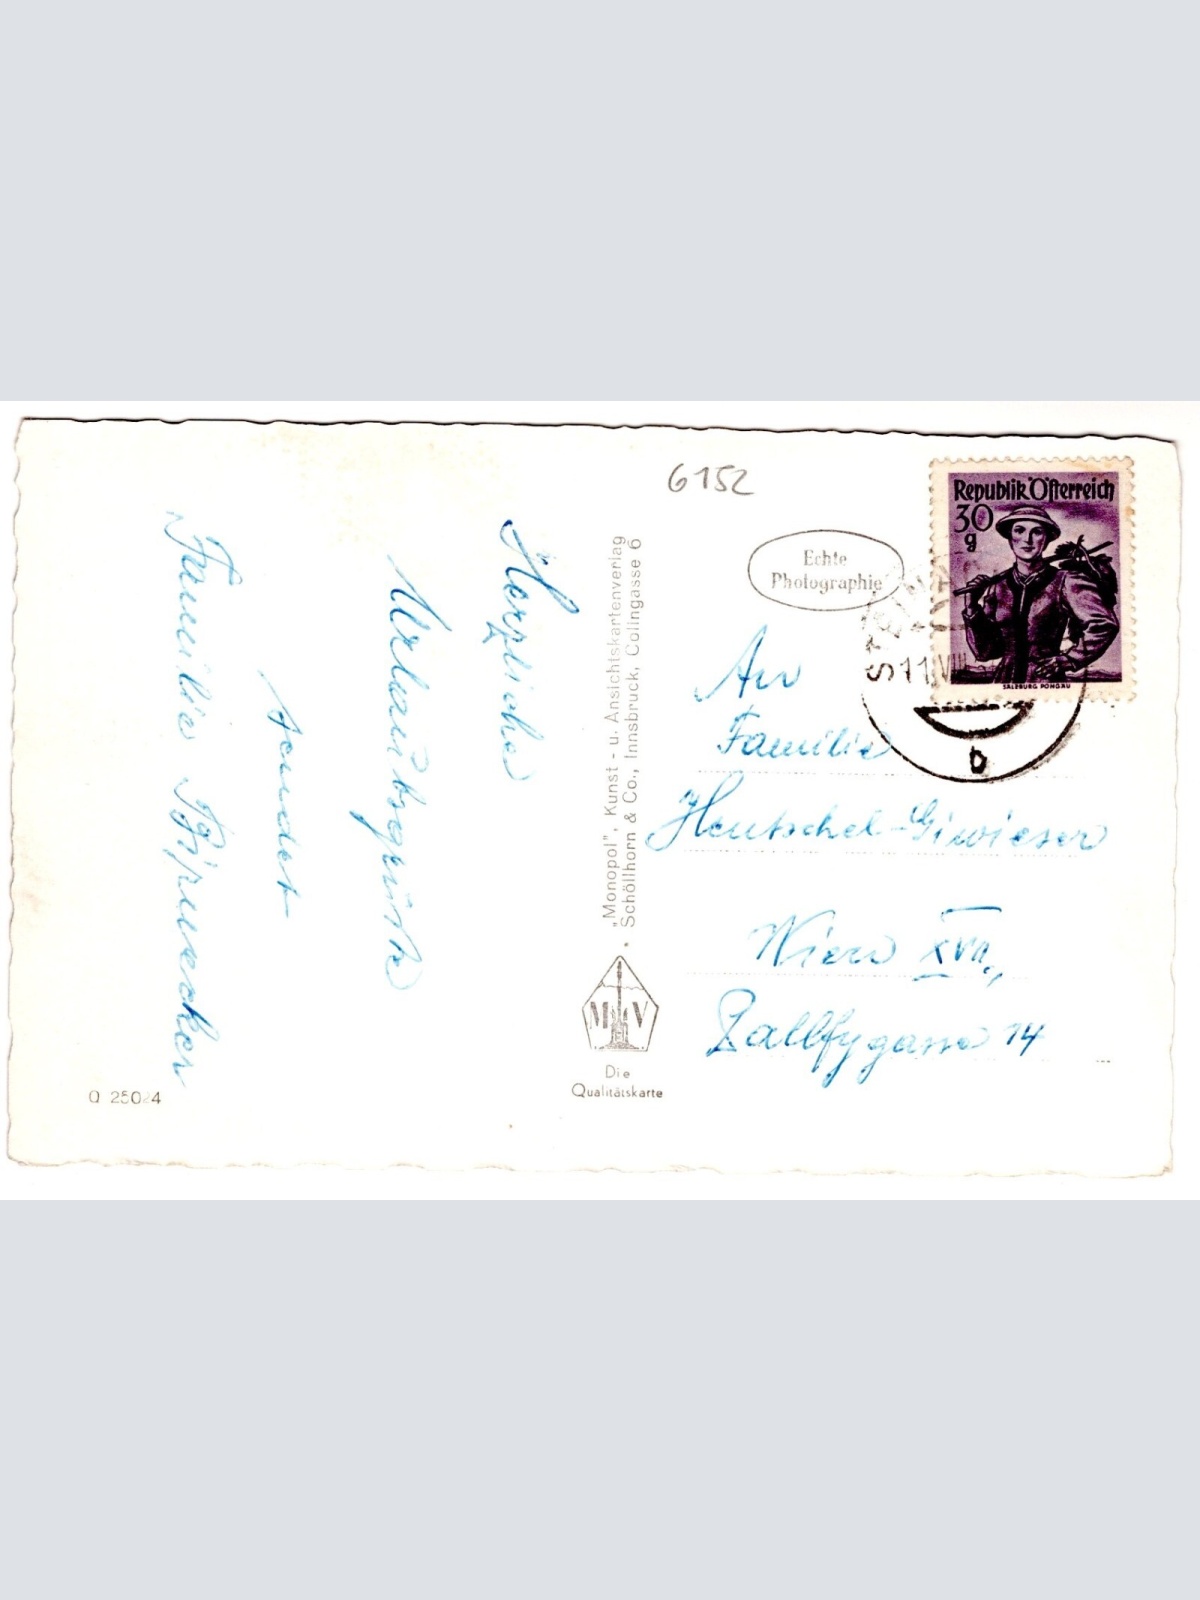 6152
Republik Österreich
30
g
SALZBURG PONGAU
Echte
Photographie
11.VIII
b
Herzliche
Urlaubsgrüße
sendet
Familie
An
Familie
Hentschel-Giwieser
Wien XVII.,
Palffygasse 14
„Monopol", Kunst - u. Ansichtskartenverlag
Schöllhorn & Co., Innsbruck, Colingasse 6
M V
Die
Qualitätskarte
Q 25024